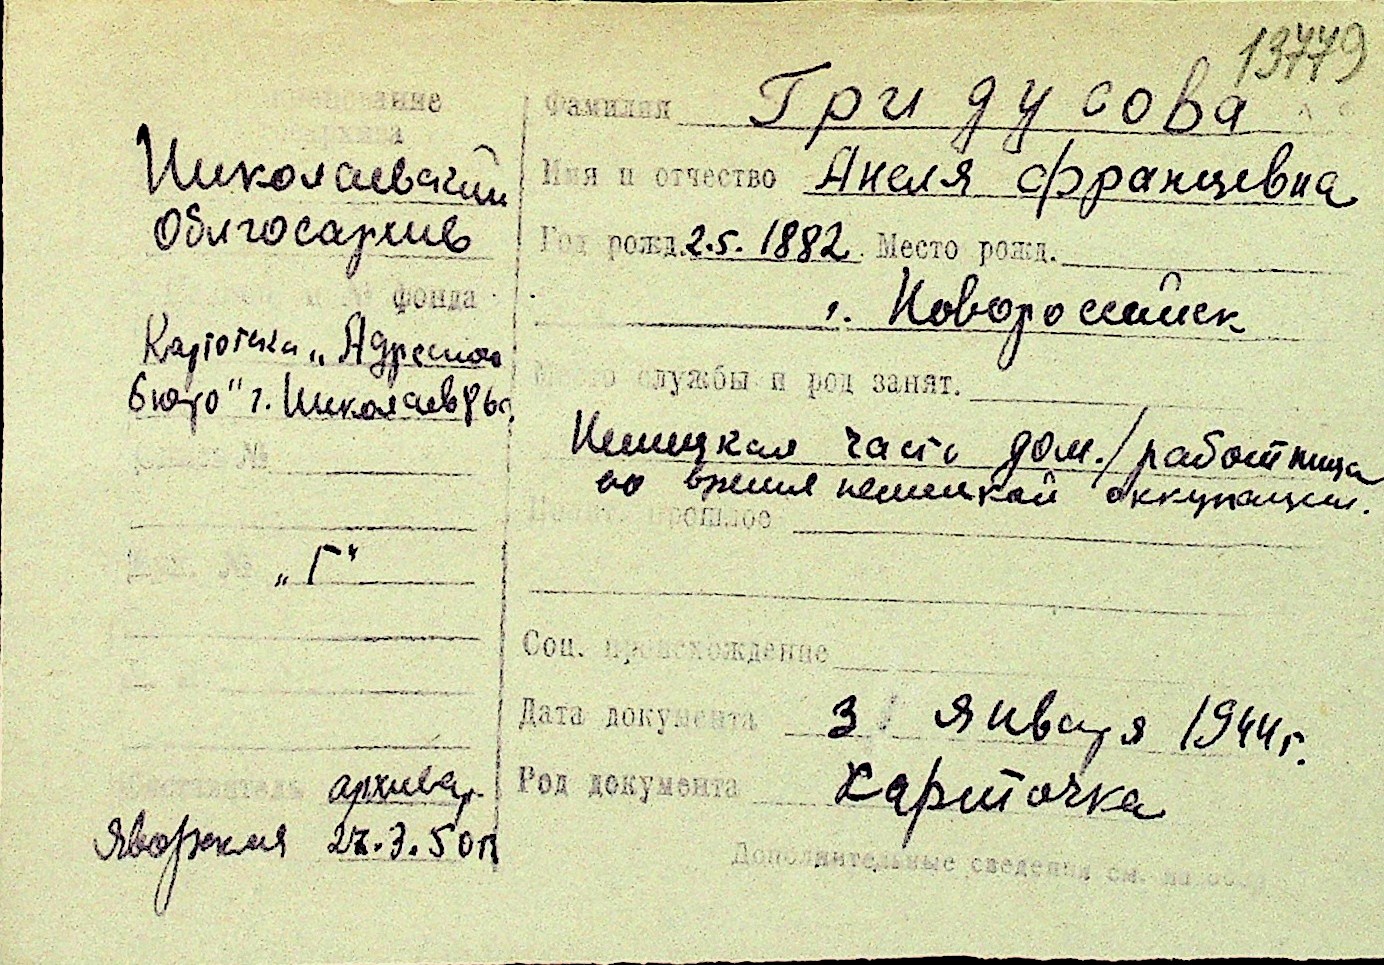 13779
наименование
архива
Николаевский
Облгосархив
и № фонда
Картотека „Адресное
бюро" г. Николаев
Опись №
№ „Г"
Составитель архивар.
Яворская 27.3.50г.
Фамилия Гридусова
Имя и отчество Анеля Францевна
Год рожд. 2.5.1882 Место рожд.
г. Новороссийск
Место службы и род занят.
Немецкая часть дом./работница
во время немецкой оккупации.
Полит. прошлое
Соц. происхождение
Дата документа 3 января 1944г.
Род документа карточка
Дополнительные сведения см. на обор.